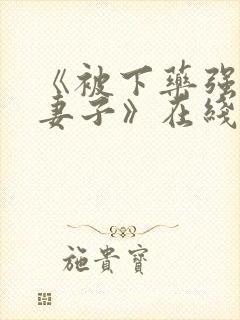 《被下藥强
妻子》在綫
施貴寶